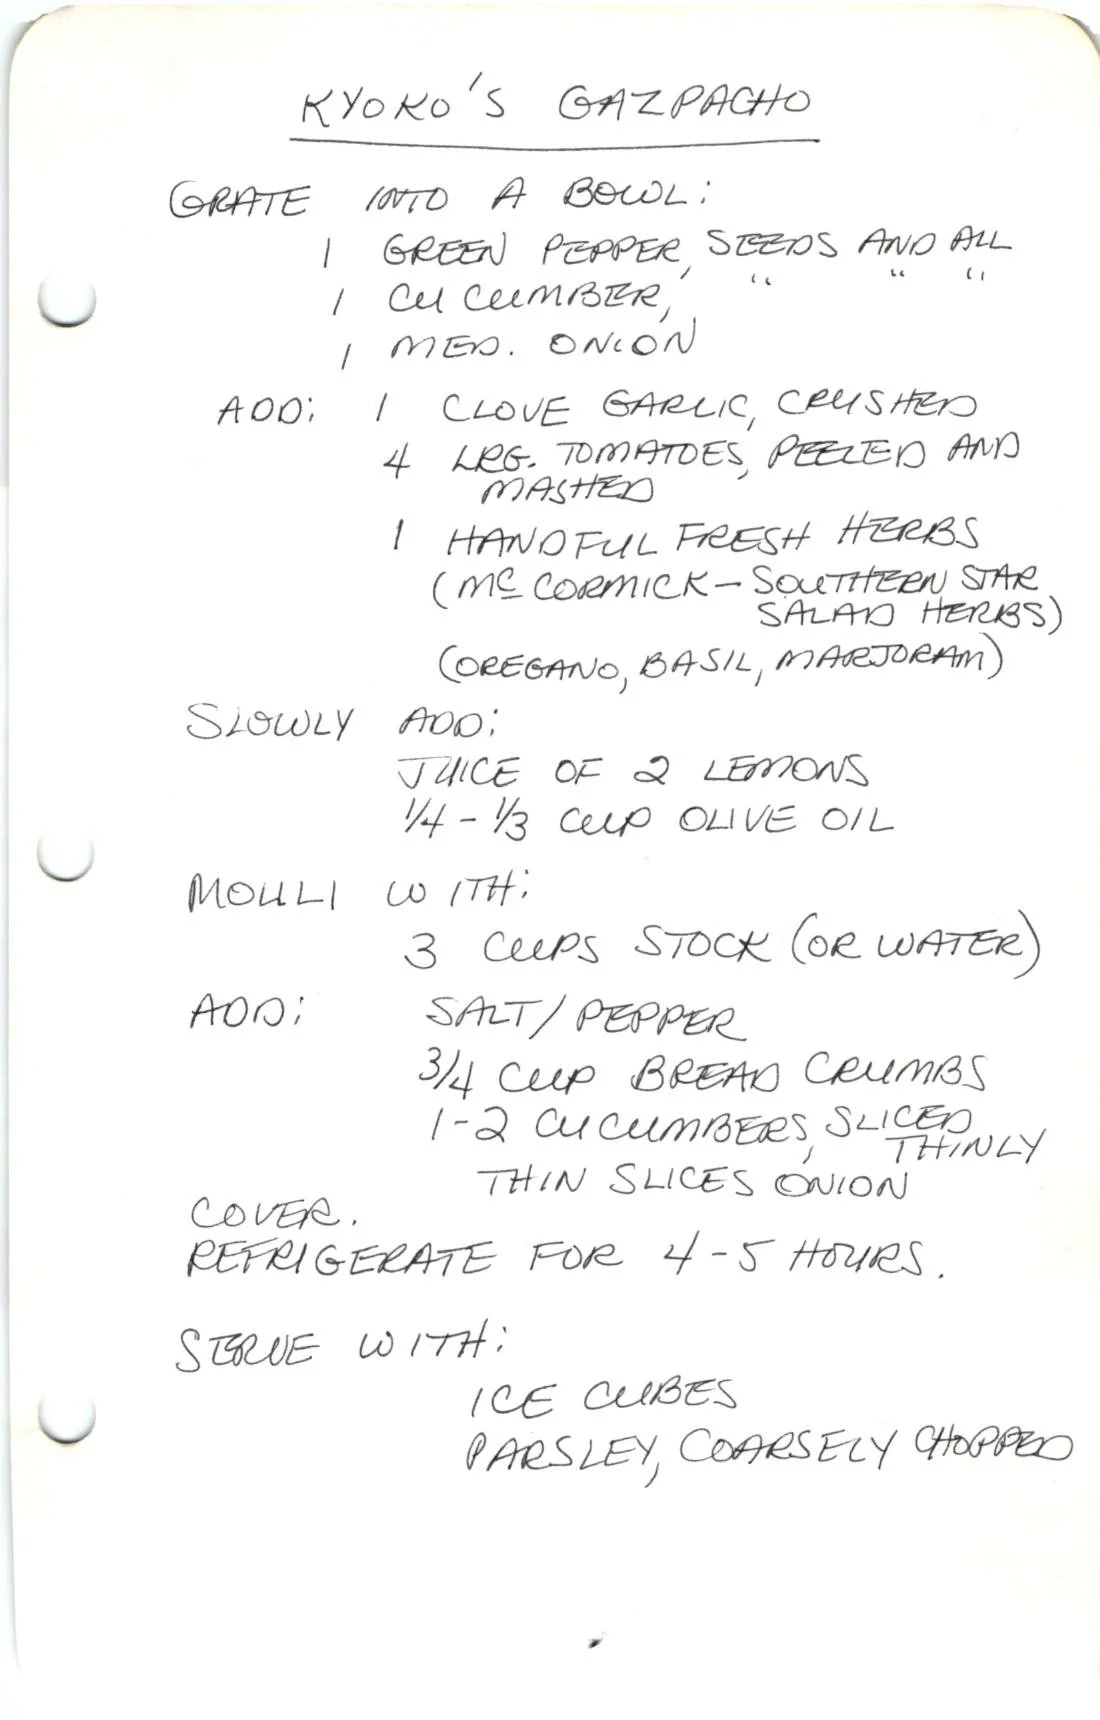 KYOKO'S GAZPACHO
GRATE INTO A BOWL:
1 GREEN PEPPER, SEEDS AND ALL
1 CUCUMBER, " " "
1 MED. ONION
ADD: 1 CLOVE GARLIC, CRUSHED
4 LRG. TOMATOES, PEELED AND
MASHED
1 HANDFUL FRESH HERBS
(McCORMICK - SOUTHERN STAR
SALAD HERBS)
(OREGANO, BASIL, MARJORAM)
SLOWLY ADD:
JUICE OF 2 LEMONS
1/4 - 1/3 CUP OLIVE OIL
MOULI WITH:
3 CUPS STOCK (OR WATER)
ADD: SALT/PEPPER
3/4 CUP BREAD CRUMBS
1-2 CUCUMBERS, SLICED
THINLY
THIN SLICES ONION
COVER.
REFRIGERATE FOR 4-5 HOURS.
SERVE WITH:
ICE CUBES
PARSLEY, COARSELY CHOPPED